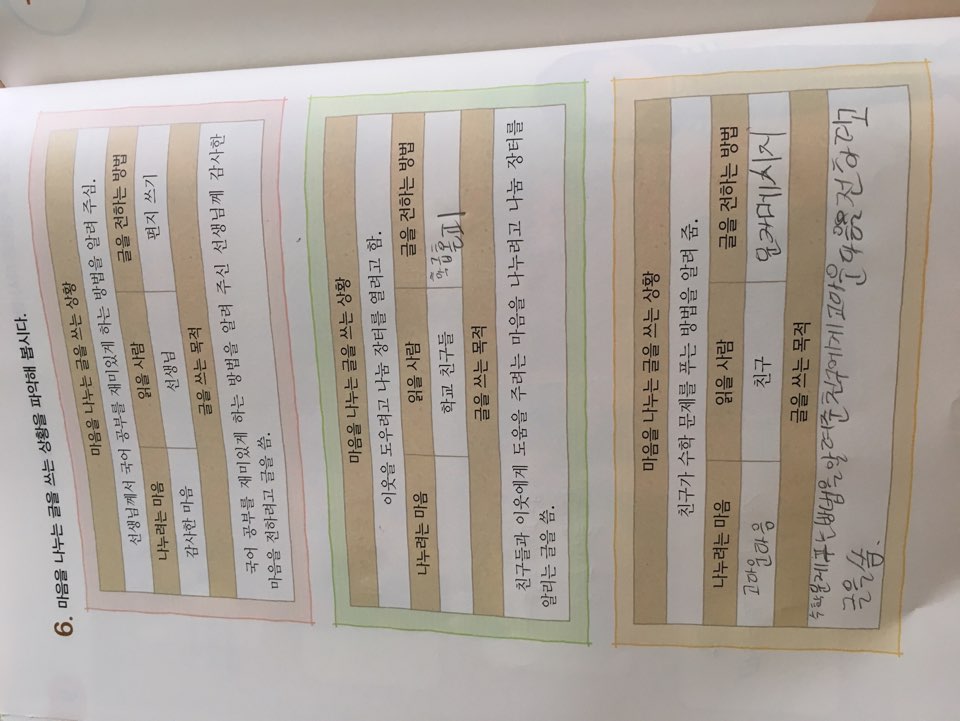 6. 마음을 나누는 글을 쓰는 상황을 파악해 봅시다.
마음을 나누는 글을 쓰는 상황
선생님께서 국어 공부를 재미있게 하는 방법을 알려 주심.
나누려는 마음 읽을 사람 글을 전하는 방법
감사한 마음 선생님 편지 쓰기
글을 쓰는 목적
국어 공부를 재미있게 하는 방법을 알려 주신 선생님께 감사한
마음을 전하려고 글을 씀.
마음을 나누는 글을 쓰는 상황
이웃을 도우려고 나눔 장터를 열려고 함.
나누려는 마음 읽을 사람 글을 전하는 방법
학교 친구들
글을 쓰는 목적
친구들과 이웃에게 도움을 주려는 마음을 나누려고 나눔 장터를
알리는 글을 씀.
마음을 나누는 글을 쓰는 상황
친구가 수학 문제를 푸는 방법을 알려 줌.
나누려는 마음 읽을 사람 글을 전하는 방법
고마운마음 친구 메시지
글을 쓰는 목적
수학문제푸는방법을알려준친구에게고마운마음을전하려고
글을씀.